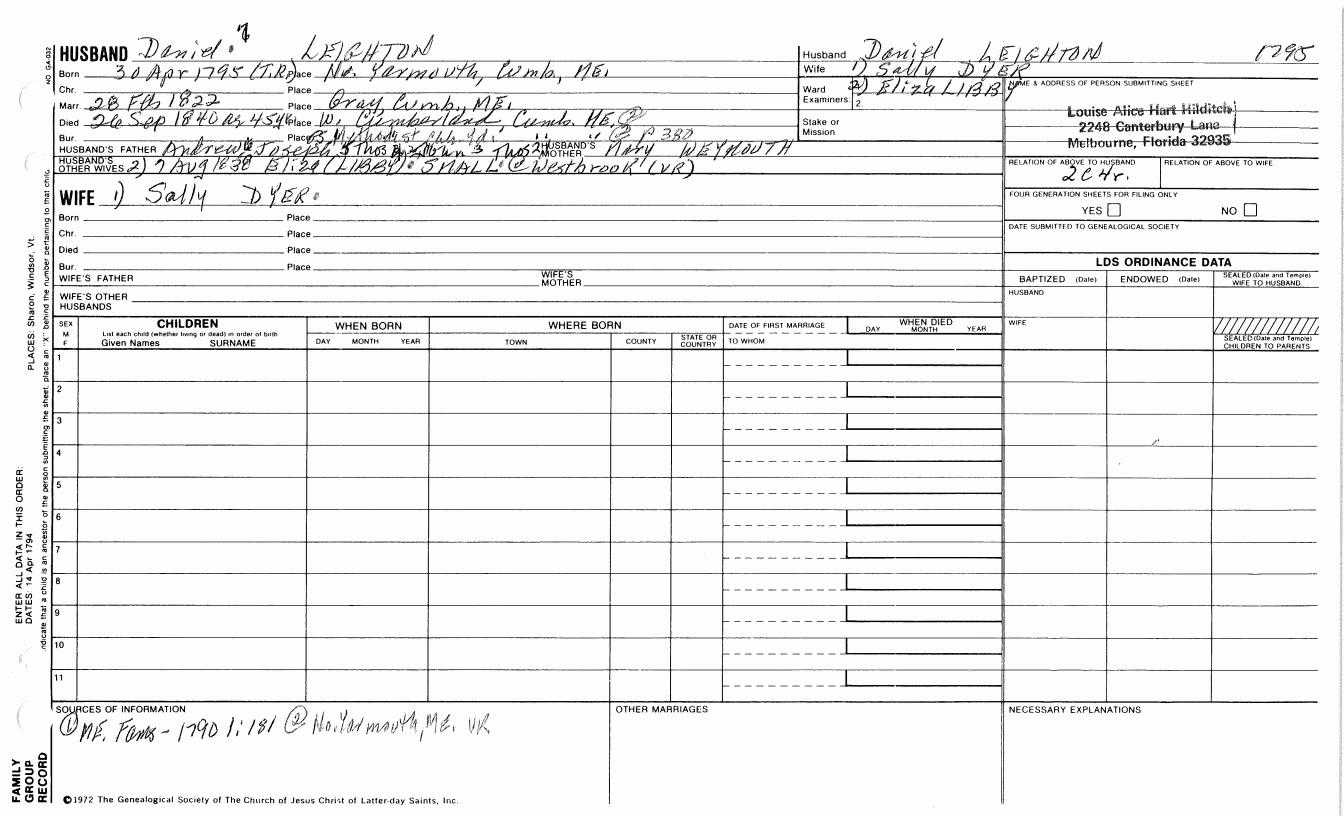 NO. GA-032
HUSBAND Daniel 7 LEIGHTON
Born 30 Apr 1795 (T.R.) Place No. Yarmouth, Cumb, ME.
Chr. Place
Marr. 28 Feb 1822 Place Gray, Cumb., ME.
Died 26 Sep 1840 ag 45 Place W. Cumberland, Cumb. ME. ②
Bur. Place Methodist Ch. Yd. " " ② p 380
HUSBAND'S FATHER Andrew 6 Joseph 5 Thos Thos 2 HUSBAND'S MOTHER Mary WEYMOUTH
HUSBAND'S OTHER WIVES 2) 7 Aug 1838 Eliza (LIBBY) SMALL @ Westbrook (VR)
Husband Daniel LEIGHTON 1795
Wife 1) Sally DYER
2) Eliza LIBBY
Ward
Examiners 2
Stake or
Mission
NAME & ADDRESS OF PERSON SUBMITTING SHEET
Louise Alice Hart Hilditch
2248 Canterbury Lane
Melbourne, Florida 32935
RELATION OF ABOVE TO HUSBAND RELATION OF ABOVE TO WIFE
2C4r.
FOUR GENERATION SHEETS FOR FILING ONLY
YES NO
DATE SUBMITTED TO GENEALOGICAL SOCIETY
WIFE 1) Sally DYER
Born Place
Chr. Place
Died Place
Bur. Place
WIFE'S FATHER WIFE'S MOTHER
WIFE'S OTHER
HUSBANDS
LDS ORDINANCE DATA
BAPTIZED (Date) ENDOWED (Date) SEALED (Date and Temple) WIFE TO HUSBAND
HUSBAND
WIFE
SEALED (Date and Temple)
CHILDREN TO PARENTS
SEX
M
F
CHILDREN
List each child (whether living or dead) in order of birth
Given Names SURNAME
WHEN BORN
DAY MONTH YEAR
WHERE BORN
TOWN COUNTY STATE OR COUNTRY
DATE OF FIRST MARRIAGE
TO WHOM
WHEN DIED
DAY MONTH YEAR
1
2
3
4
5
6
7
8
9
10
11
SOURCES OF INFORMATION
① ME. Fams - 1790 1:181 ② No. Yarmouth, ME. VR
OTHER MARRIAGES
NECESSARY EXPLANATIONS
©1972 The Genealogical Society of The Church of Jesus Christ of Latter-day Saints, Inc.
FAMILY
GROUP
RECORD
ENTER ALL DATA IN THIS ORDER:
DATES: 14 Apr 1794
PLACES: Sharon, Windsor, Vt.
ndicate that a child is an ancestor of the person submitting the sheet, place an "X" behind the number pertaining to that child.